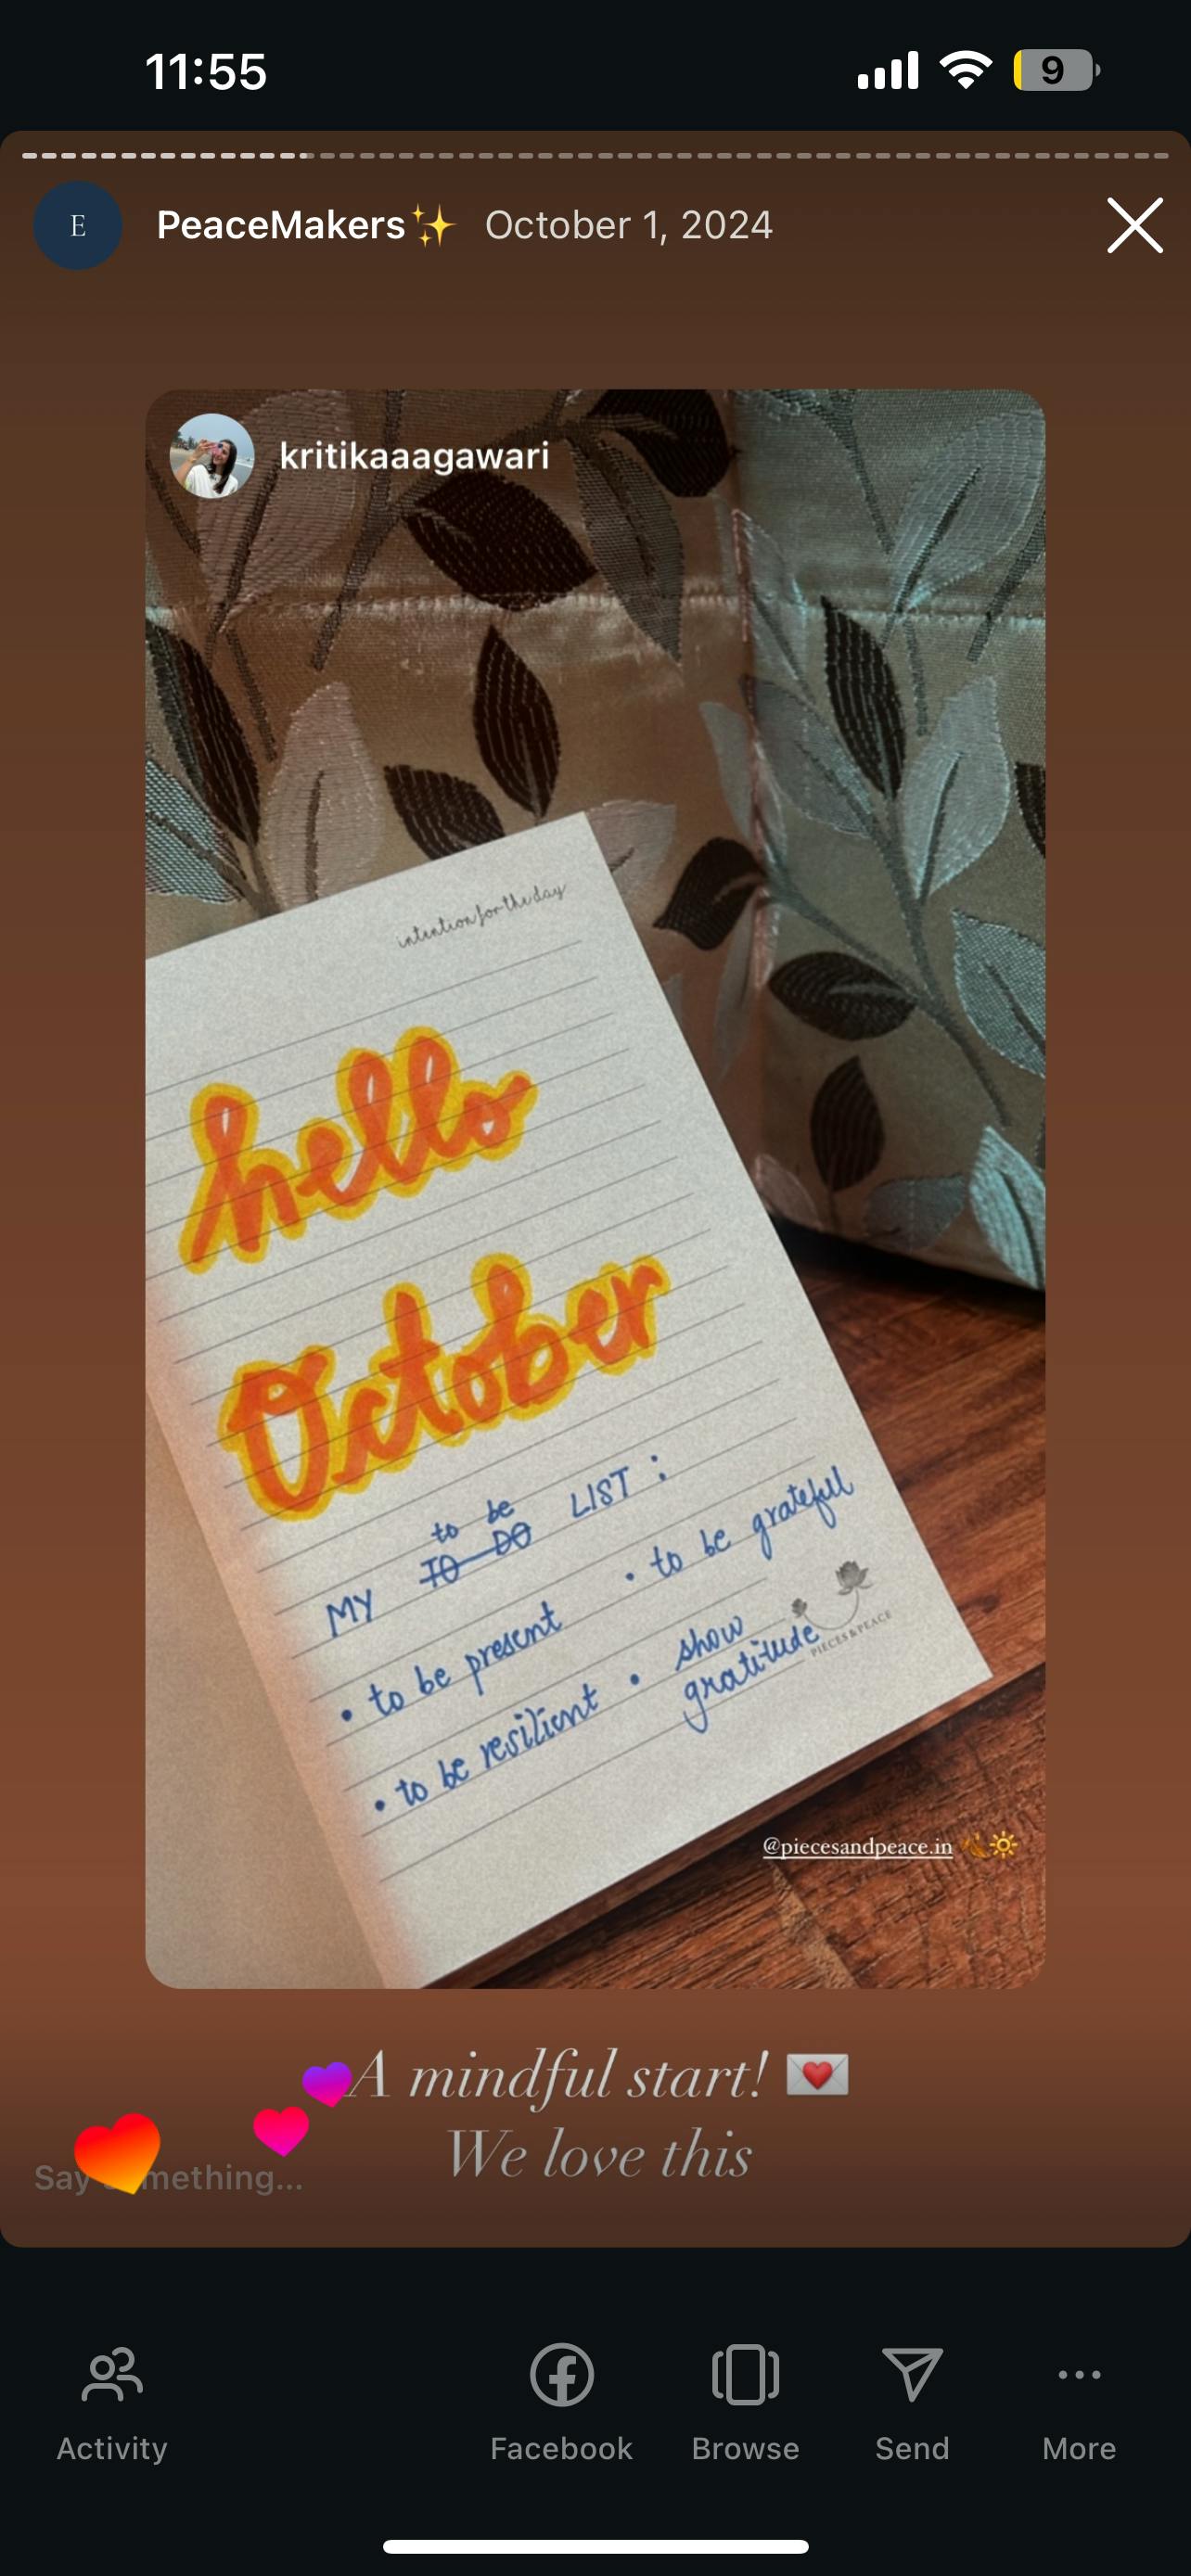 11:55
9
E
PeaceMakers✨ October 1, 2024
kritikaaagawari
intention for the day
hello
October
to be
MY TO DO LIST :
• to be present
• to be grateful
• to be resilient
• show
gratitude
PIECES&PEACE
@piecesandpeace.in
A mindful start! 💌
We love this
Say something...
Activity
Facebook
Browse
Send
More